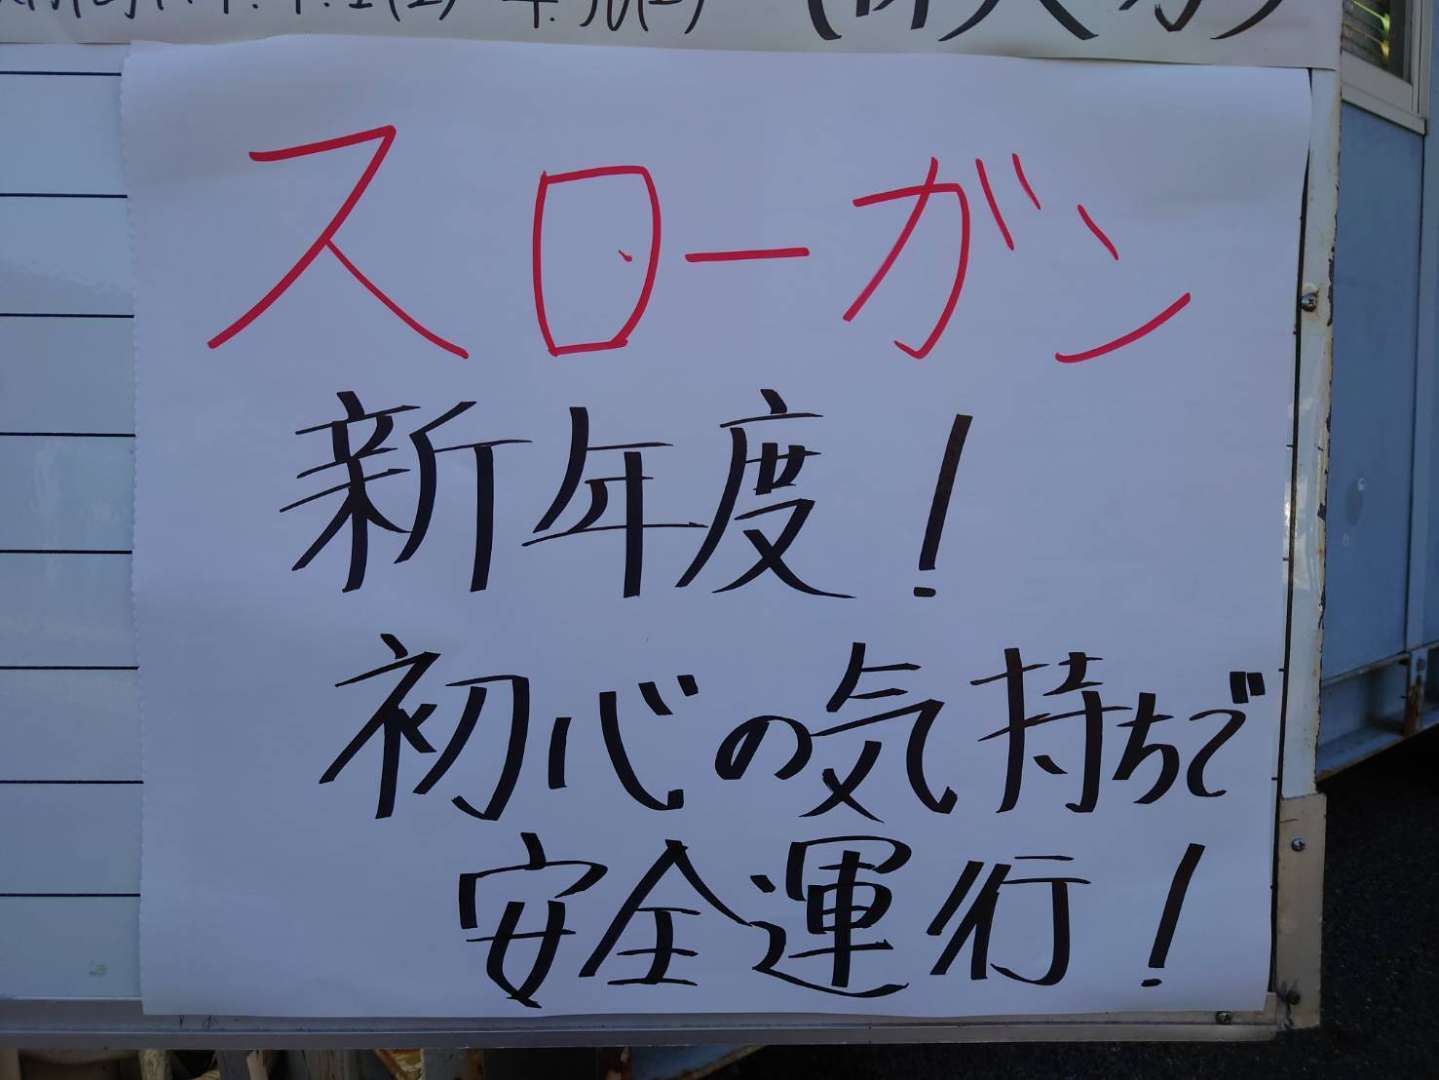 スローガン
新年度！
初心の気持ちで
安全運行！